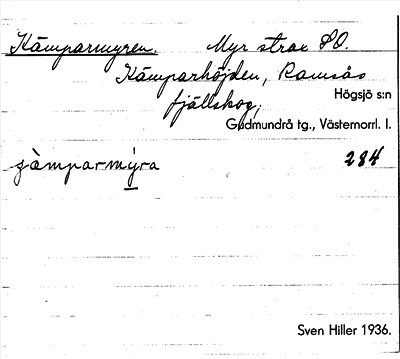 Kämparmyren. Myr strax SO.
Kämparhöjden, Ramsås
fjällskog,
Högsjö s:n
Gudmundrå tg., Västernorrl. l.
jàmparmýra 284
Sven Hiller 1936.